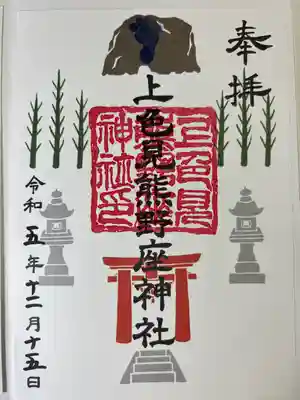 奉拝
上色見熊野座神社
上色見
神社印
令和五年十二月十五日